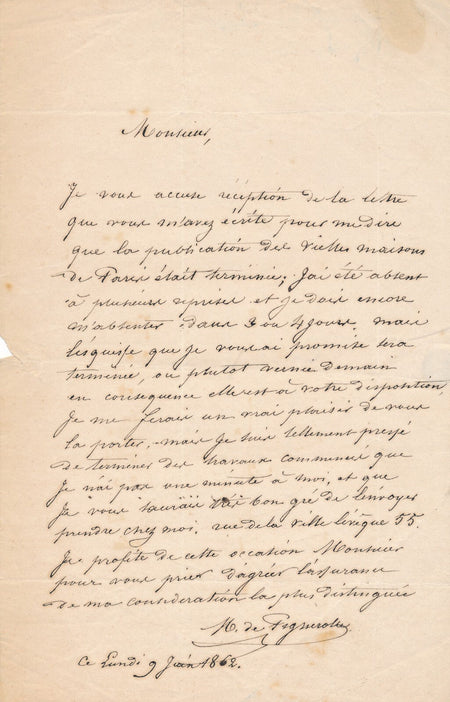 Monsieur,
Je vous accuse réception de la lettre
que vous m'avez écrite pour me dire
que la publication des vielles maisons
de Paris était terminée; J'ai été absent
à plusieurs reprises et je dois encore
m'absenter dans 3 ou 4 jours. mais
l'esquisse que je vous ai promise sera
terminée, ou plutot vernie demain
en conséquence elle est à votre disposition,
Je me ferais un vrai plaisir de vous
la porter, mais je suis tellement pressé
de terminer des travaux commencés que
Je n'ai pas une minute à moi, et que
Je vous saurais très bon gré de l'envoyer
prendre chez moi. rue de la ville l'évèque 55.
Je profite de cette occasion Monsieur
pour vous prier d'agréer l'assurance
de ma considération la plus distinguée
M. de
Ce Lundi 9 Juin 1862.